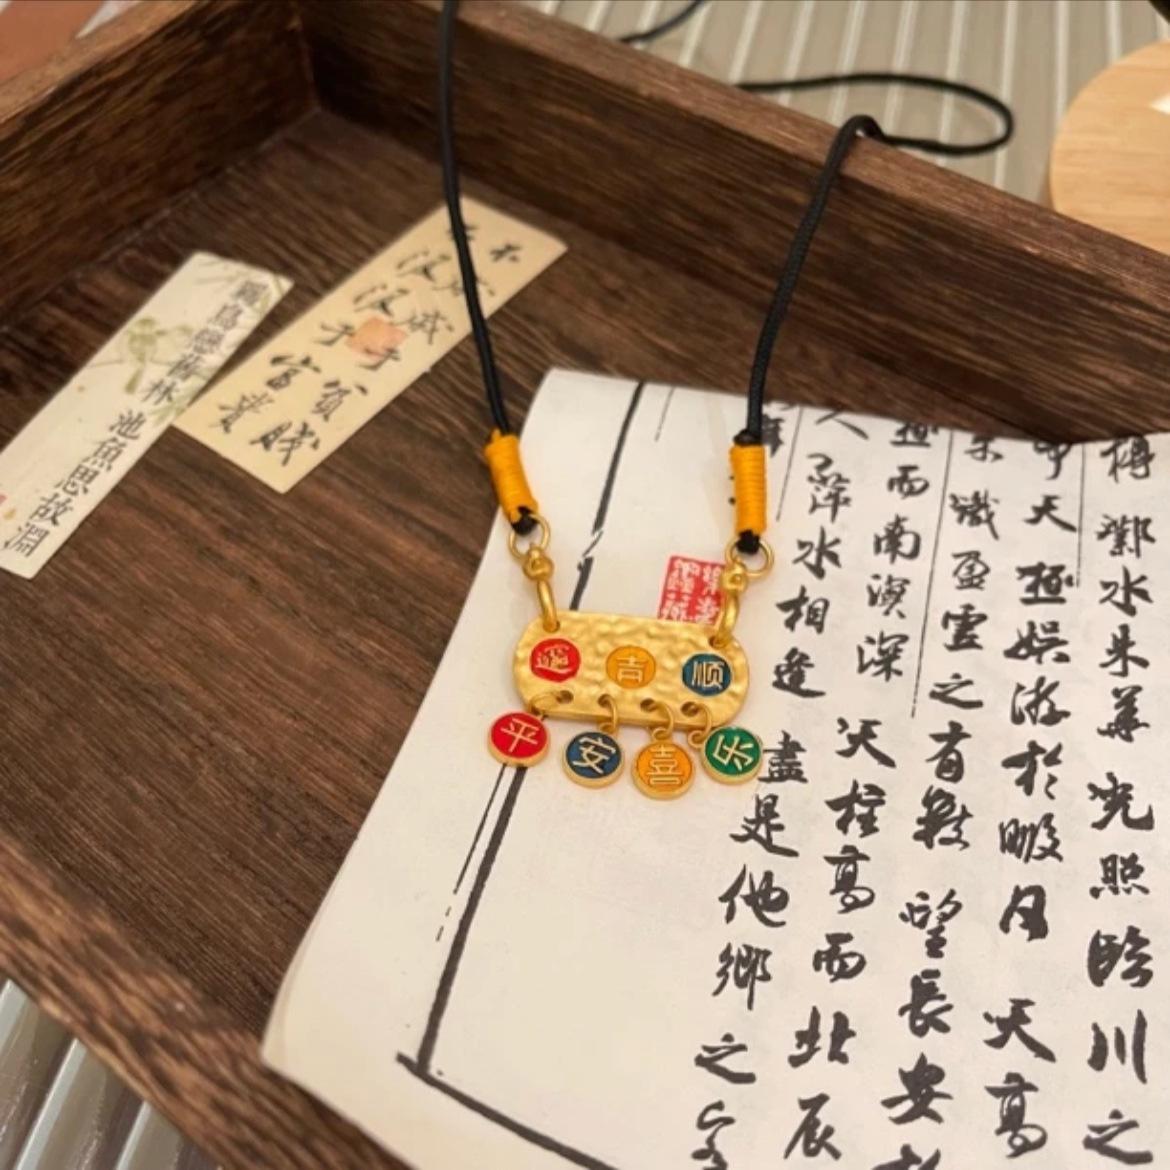 羈鳥戀舊林
池魚思故淵
不戚戚于贫贱
不汲汲于富贵
吉顺
平安喜乐
樽鄴水朱華光照臨川之
中天極娛游於暇日天高
来識盈虛之有數望長安於
極而南溟深天柱高而北辰
人萍水相逢盡是他鄉之客